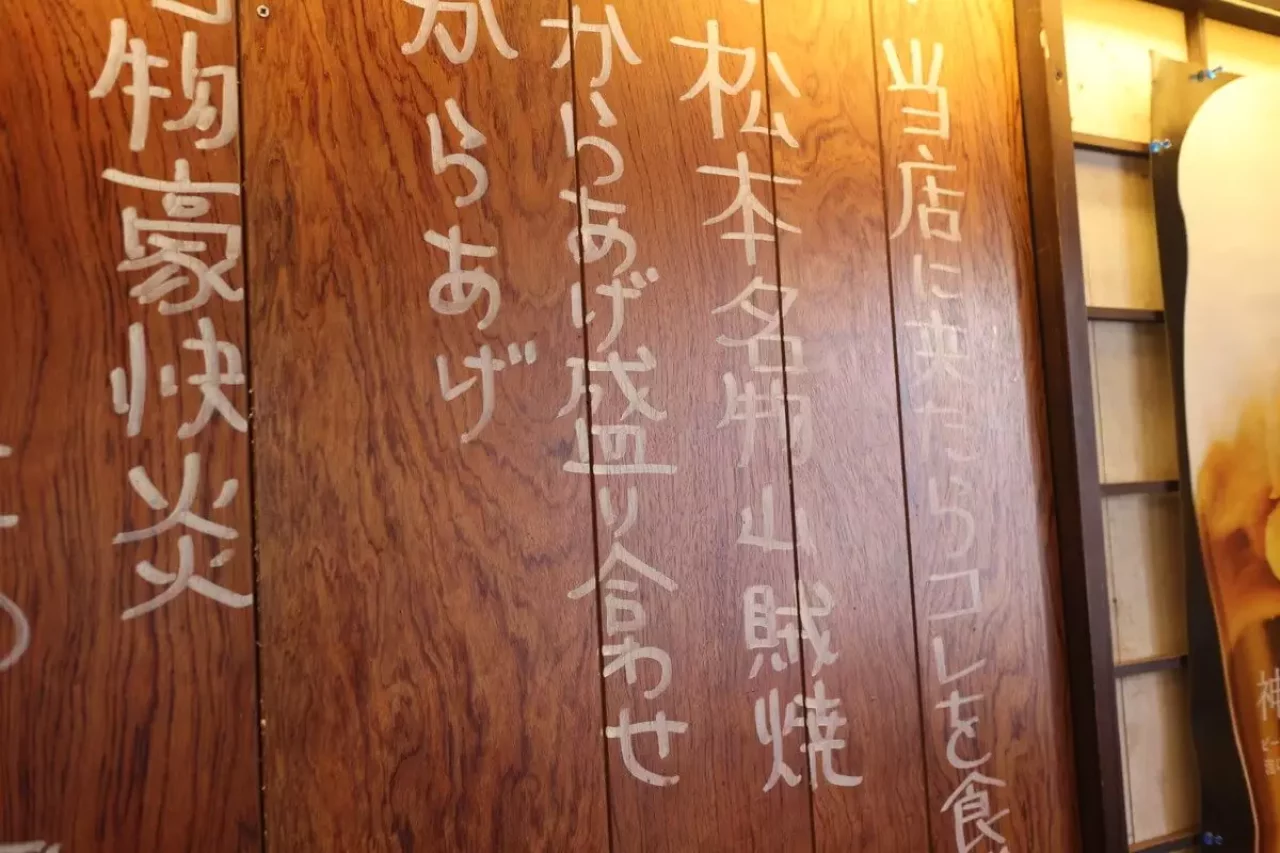 当店に来たらコレを食
松本名物山賊焼
からあげ盛り合わせ
からあげ
物豪快炎
神